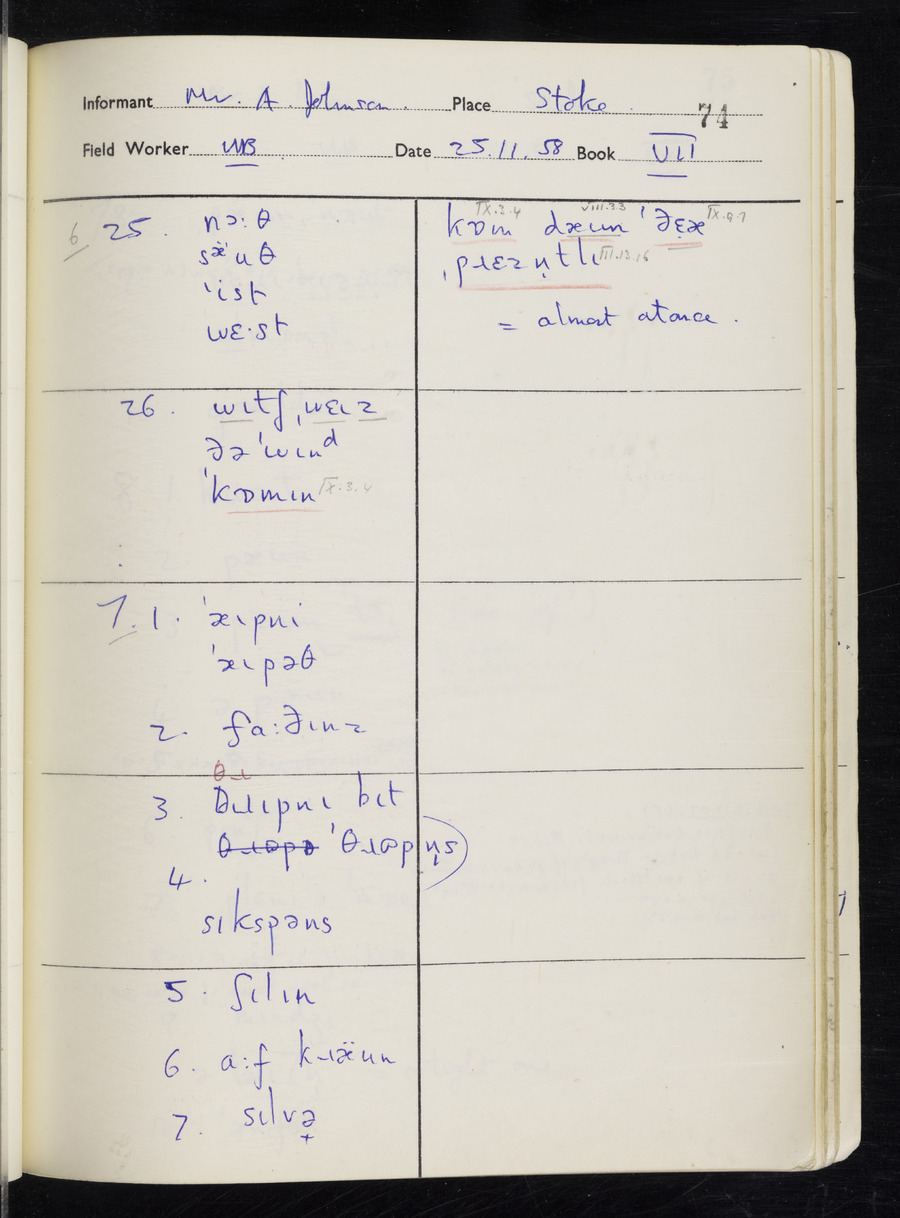 Informant Mr. A. Johnson. Place Stoke. 74
Field Worker WB. Date 25.11.58 Book VII
6 25. nɔ:θ
sæ̈uθ
ˈist
wɛ·st
IX.3.4 VIII.3.3 IX.9.7
kɒm dæun ˈðɛ̣æ
ˌpɹɛzn̩tlɪ III.13.16
= almost atonce.
26. wɪtʃ ˌwɛɪz
ðə ˈwɪnᵈ
ˈkɒmɪn IX.3.4
7.1. ˈæɪpni
ˈæɪpəθ
2. fa:ðɪnz
θɹ
3. θɹɪpnɪ bɪt
4. θɹɒpə ˈθɹɒpn̩s
sɪkspəns
5. ʃɪlɪn
6. a:f kɹæ̈un
7. sɪlvə̟